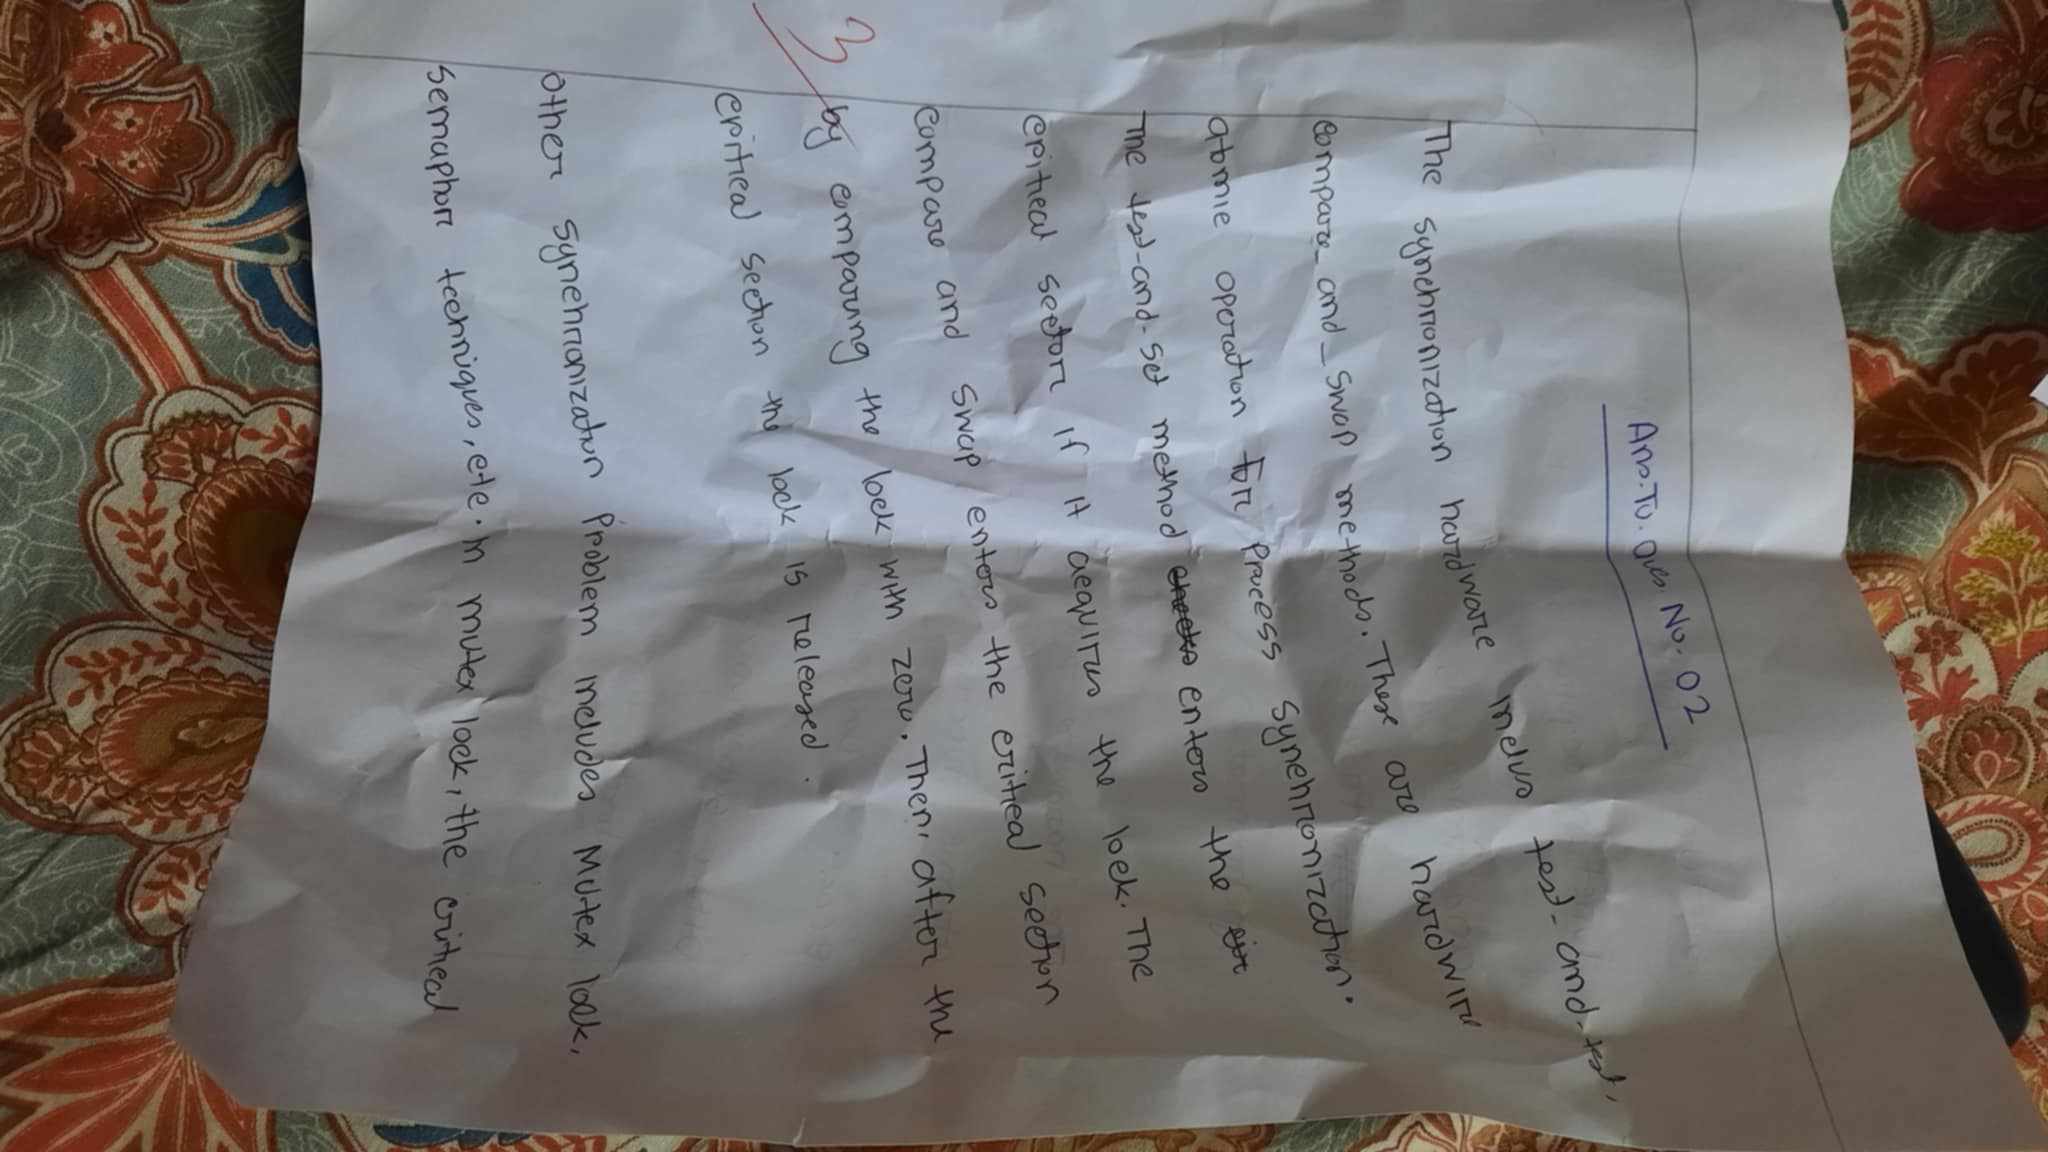 Ans. To. Ques. No. 02
The synchronization hardware inclus test-and-test,
compare_and_swap methods. These are hardwire
atomic operation for Process synchronization.
The test-and-set method checks enters the cir
critical section if it acquires the lock. The
compare and swap enters the critical section
3
by comparing the lock with zero. Then, after the
critical section the lock is released.
Other synchronization Problem includes Mutex lock,
semaphor techniques, etc. In mutex lock, the critical